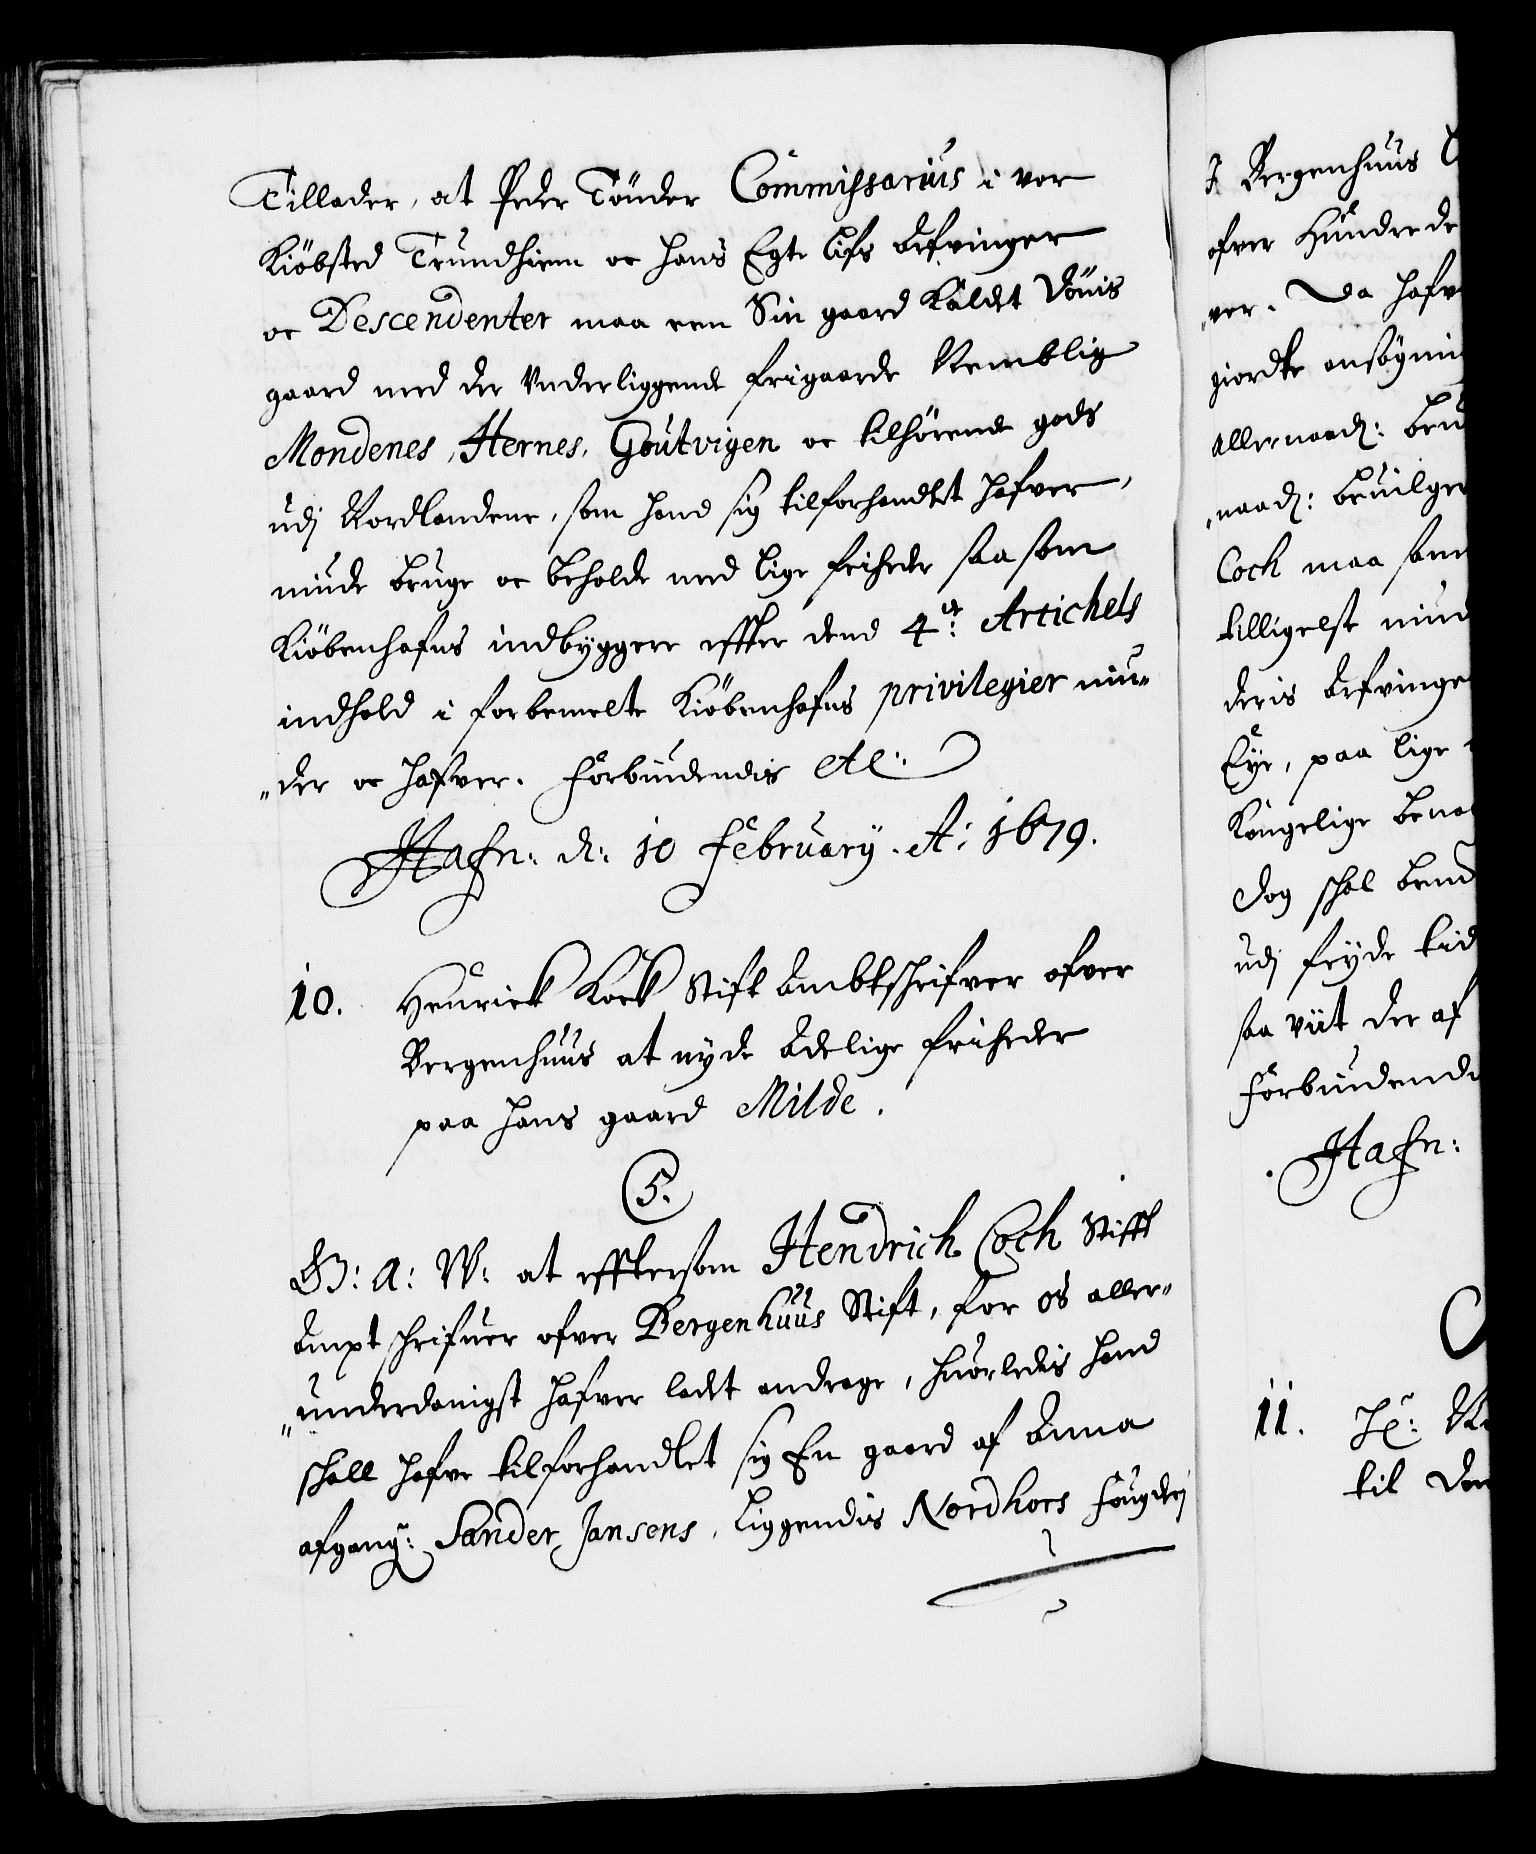 Tillader, at Peder Tönder Commissarius i vor
Kiöbsted Trundhiem oc hans Egte lifs Arfvinger
oc Descendenter maa een Sin gaard kaldet Dönis
gaard med der Underliggende frigaarde Nemblig
Mondenes, Hernes, Goutvigen oc tilhörende gods
udj Nordlandene, som hand sig tilforhandlet hafver,
niude bruge oc beholde med lige friheder saa som
Kiöbenhafns indbyggere effter dend 4de: Artichels
indhold i forbemelte Kiöbenhafns privilegier niu„
„der oc hafver. Forbiudendis etc:
Hafn: d: 10 February. A: 1679.
10. Henrick Kock Stift Ambtschrifver ofver
Bergenhuus at nyde Adelige friheder
paa hans gaard Milde.
5.
G: A: W: at efftersom Hendrich Coch Stifft
Ampt schrifuer ofver Bergenhuus Stift, for os aller„
„underdanigst hafver ladet andrage, huorledis hand
schall hafve tilforhandlet sig En gaard af Anna
afgang: Sander Jansens, liggendis Nordhors fougderj
I Bergenhuus
ofver Hundrede
„ver. Da hafv
giordte ansögni
allernaad: bev
„naad: beuilger
Coch maa sam
tilligelst niud
deris Arfvinge
Eye, paa lige
Kongelige bena
Dog schal bem
udj fryde tid
saa viit der af
Forbiudende
Hafn:
11.
til den